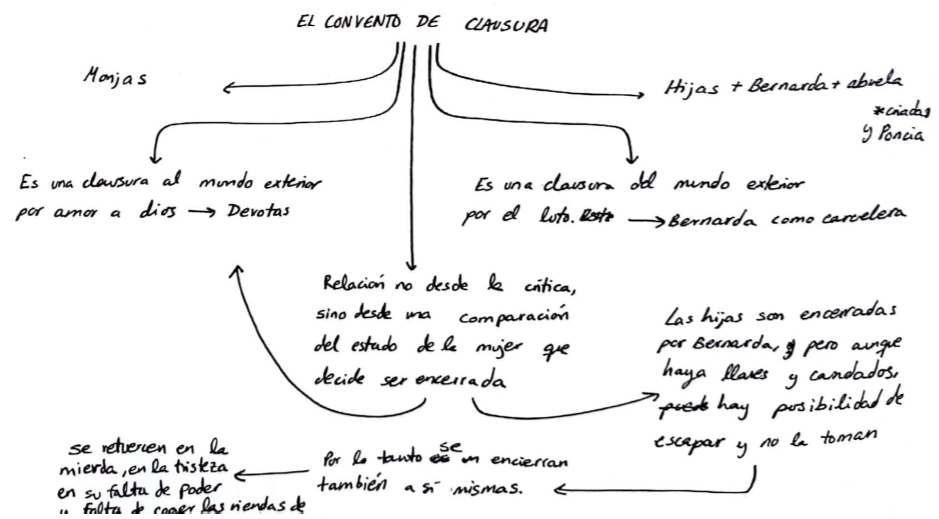 EL CONVENTO DE CLAUSURA
Monjas
Hijas + Bernarda + abuela
*criadas
y Poncia
Es una clausura al mundo exterior
por amor a dios → Devotas
Es una clausura del mundo exterior
por el luto. → Bernarda como carcelera
Relación no desde la crítica,
sino desde una comparación
del estado de la mujer que
decide ser encerrada
Las hijas son encerradas
por Bernarda, pero aunque
haya llaves y candados,
hay posibilidad de
escapar y no la toman
Por lo tanto se encierran
también a sí mismas.
se retuercen en la
mierda, en la tristeza
en su falta de poder
y falta de coger las riendas de